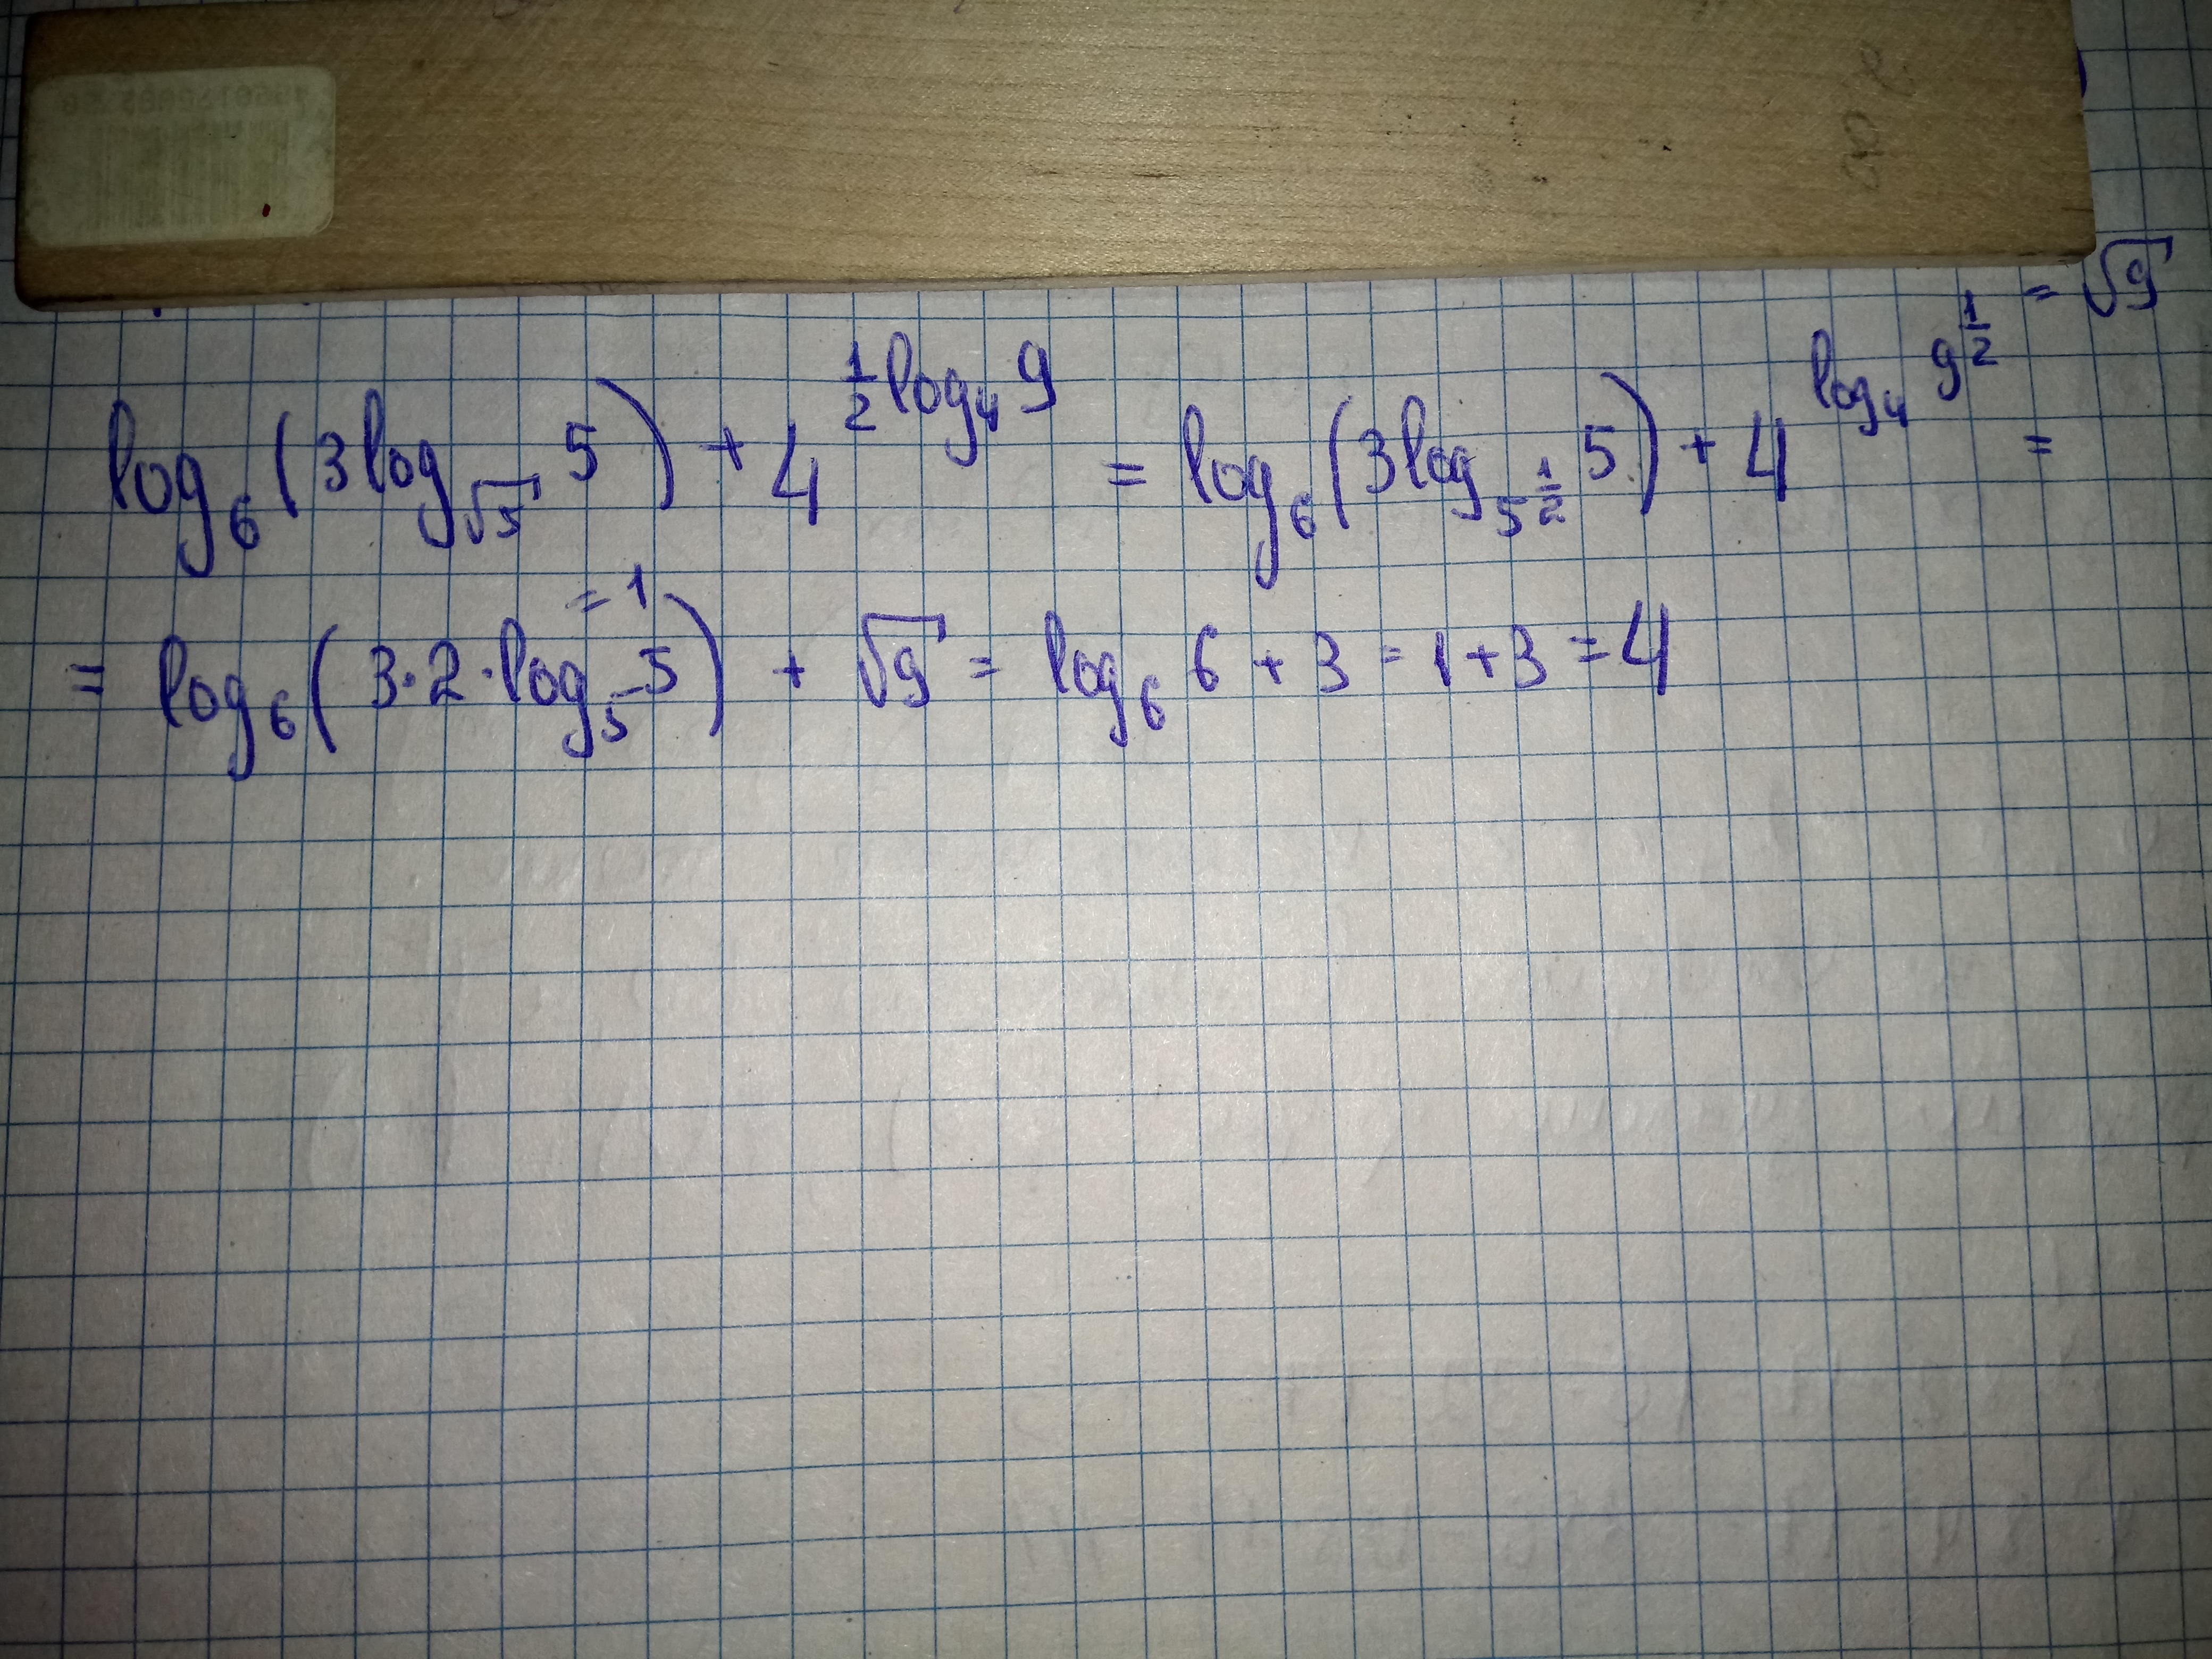 log₆(3log_√5 5) + 4^(1/2 log₄ 9) = log₆(3log_5^(1/2) 5) + 4^(log₄ 9^(1/2)) = √9 =
= log₆(3·2·log₅ 5) = 1 + √9 = log₆ 6 + 3 = 1+3 = 4